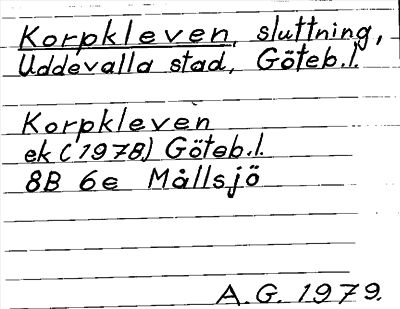 Korpkleven, sluttning,
Uddevalla stad, Göteb.l.
Korpkleven
ek (1978) Göteb.l.
8B 6e Mållsjö
A.G. 1979.